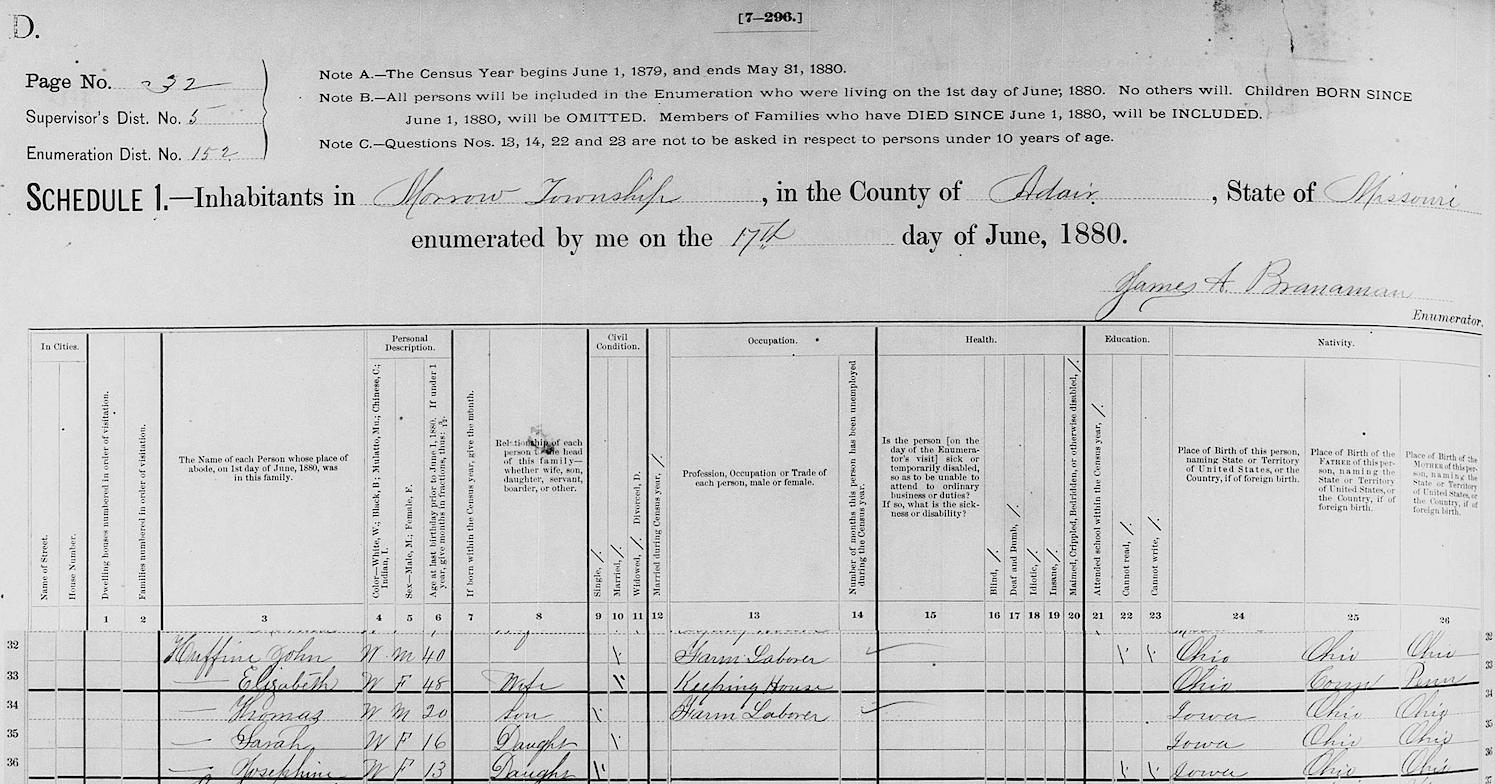 D.
[7—296.]
Page No. 32
Supervisor's Dist. No. 5
Enumeration Dist. No. 152
Note A.—The Census Year begins June 1, 1879, and ends May 31, 1880.
Note B.—All persons will be included in the Enumeration who were living on the 1st day of June; 1880. No others will. Children BORN SINCE
June 1, 1880, will be OMITTED. Members of Families who have DIED SINCE June 1, 1880, will be INCLUDED.
Note C.—Questions Nos. 13, 14, 22 and 23 are not to be asked in respect to persons under 10 years of age.
SCHEDULE 1.—Inhabitants in Morrow Township, in the County of Adair, State of Missouri
enumerated by me on the 17th day of June, 1880.
James A. Branaman
Enumerator.
In Cities.
Name of Street.
House Number.
Dwelling houses numbered in order of visitation.
Families numbered in order of visitation.
The Name of each Person whose place of
abode, on 1st day of June, 1880, was
in this family.
Personal
Description.
Color—White, W.; Black, B; Mulatto, Mu.; Chinese, C.;
Indian, I.
Sex—Male, M.; Female, F.
Age at last birthday prior to June 1, 1880. If under 1
year, give months in fractions, thus: 3/12.
If born within the Census year, give the month.
Relationship of each
person to the head
of this family—
whether wife, son,
daughter, servant,
boarder, or other.
Civil
Condition.
Single, /.
Married, /.
Widowed, /. Divorced, D.
Married during Census year, /.
Occupation.
Profession, Occupation or Trade of
each person, male or female.
Number of months this person has been unemployed
during the Census year.
Health.
Is the person [on the
day of the Enumera-
tor's visit] sick or
temporarily disabled,
so as to be unable to
attend to ordinary
business or duties?
If so, what is the sick-
ness or disability?
Blind, /.
Deaf and Dumb, /.
Idiotic, /.
Insane, /.
Maimed, Crippled, Bedridden, or otherwise disabled, /.
Education.
Attended school within the Census year, /.
Cannot read, /.
Cannot write, /.
Nativity.
Place of Birth of this person,
naming State or Territory
of United States, or the
Country, if of foreign birth.
Place of Birth of the
FATHER of this per-
son, naming the
State or Territory
of United States, or
the Country, if of
foreign birth.
Place of Birth of the
MOTHER of this per-
son, naming the
State or Territory
of United States, or
the Country, if of
foreign birth.
1 2 3 4 5 6 7 8 9 10 11 12 13 14 15 16 17 18 19 20 21 22 23 24 25 26
32 Huffine John W M 40 / Farm Laborer / / Ohio Ohio Ohio 33
33 — Elizabeth W F 48 Wife / Keeping House Ohio Conn Penn
34 — Thomas W M 20 Son / Farm Laborer Iowa Ohio Ohio 34
35 — Sarah W F 16 Daught / Iowa Ohio Ohio 35
36 — Josephine W F 13 Daught / / / Iowa Ohio Ohio 36